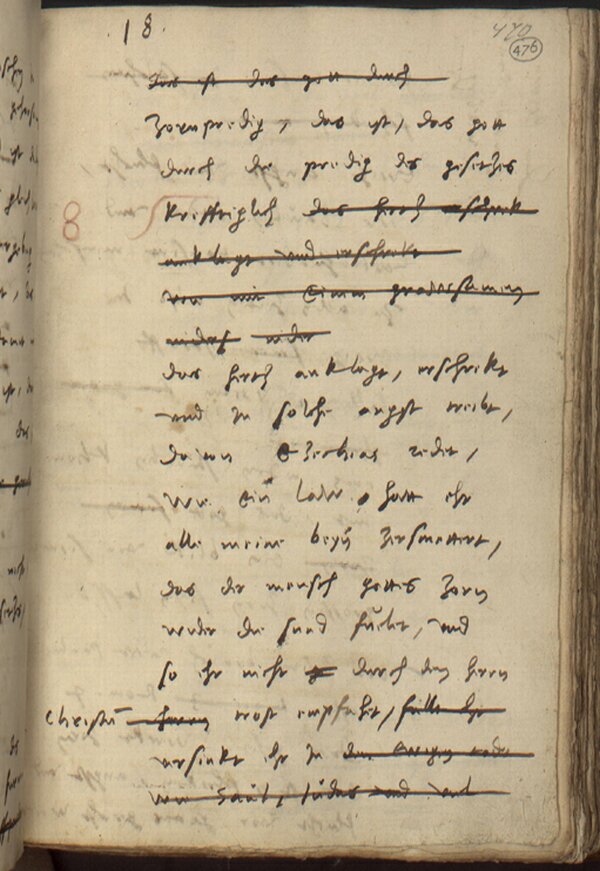 18.
470
476
das ist das gott durch
Zornpredig, das ist, das gott
durch die predig des gesetzes
8 krefftiglich das hertz erschrek
anklagt und erschrekt
von mit einem grausamen
wider
das hertz anklagt, erschrekt
und in solche angst treibt,
davon Ezechias redet,
wie ein low hatt ehr
alle meine beyn zersmettert,
das der mensch gottes Zorn
wider die sund fuelet, und
so ehr nicht durch den herrn
Christum trost empfahet, fellt ehr
versinkt ehr in den ewigen tode
wie Saul, Judas und